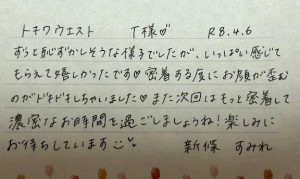 トキワウエスト T様♡ R8.4.6
ずっと恥ずかしそうな様子でしたが、いっぱい感じて
もらえて嬉しかったです♡密着する度にお顔が歪む
のがドキドキしちゃいました♡また次回はもっと密着して
濃密なお時間を過ごしましょうね!楽しみに
お待ちしています
新條 すみれ